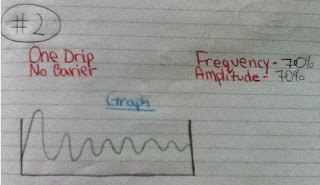 #2
One Drip
No Barier
Frequency - 70%
Amplitude - 70%
Graph